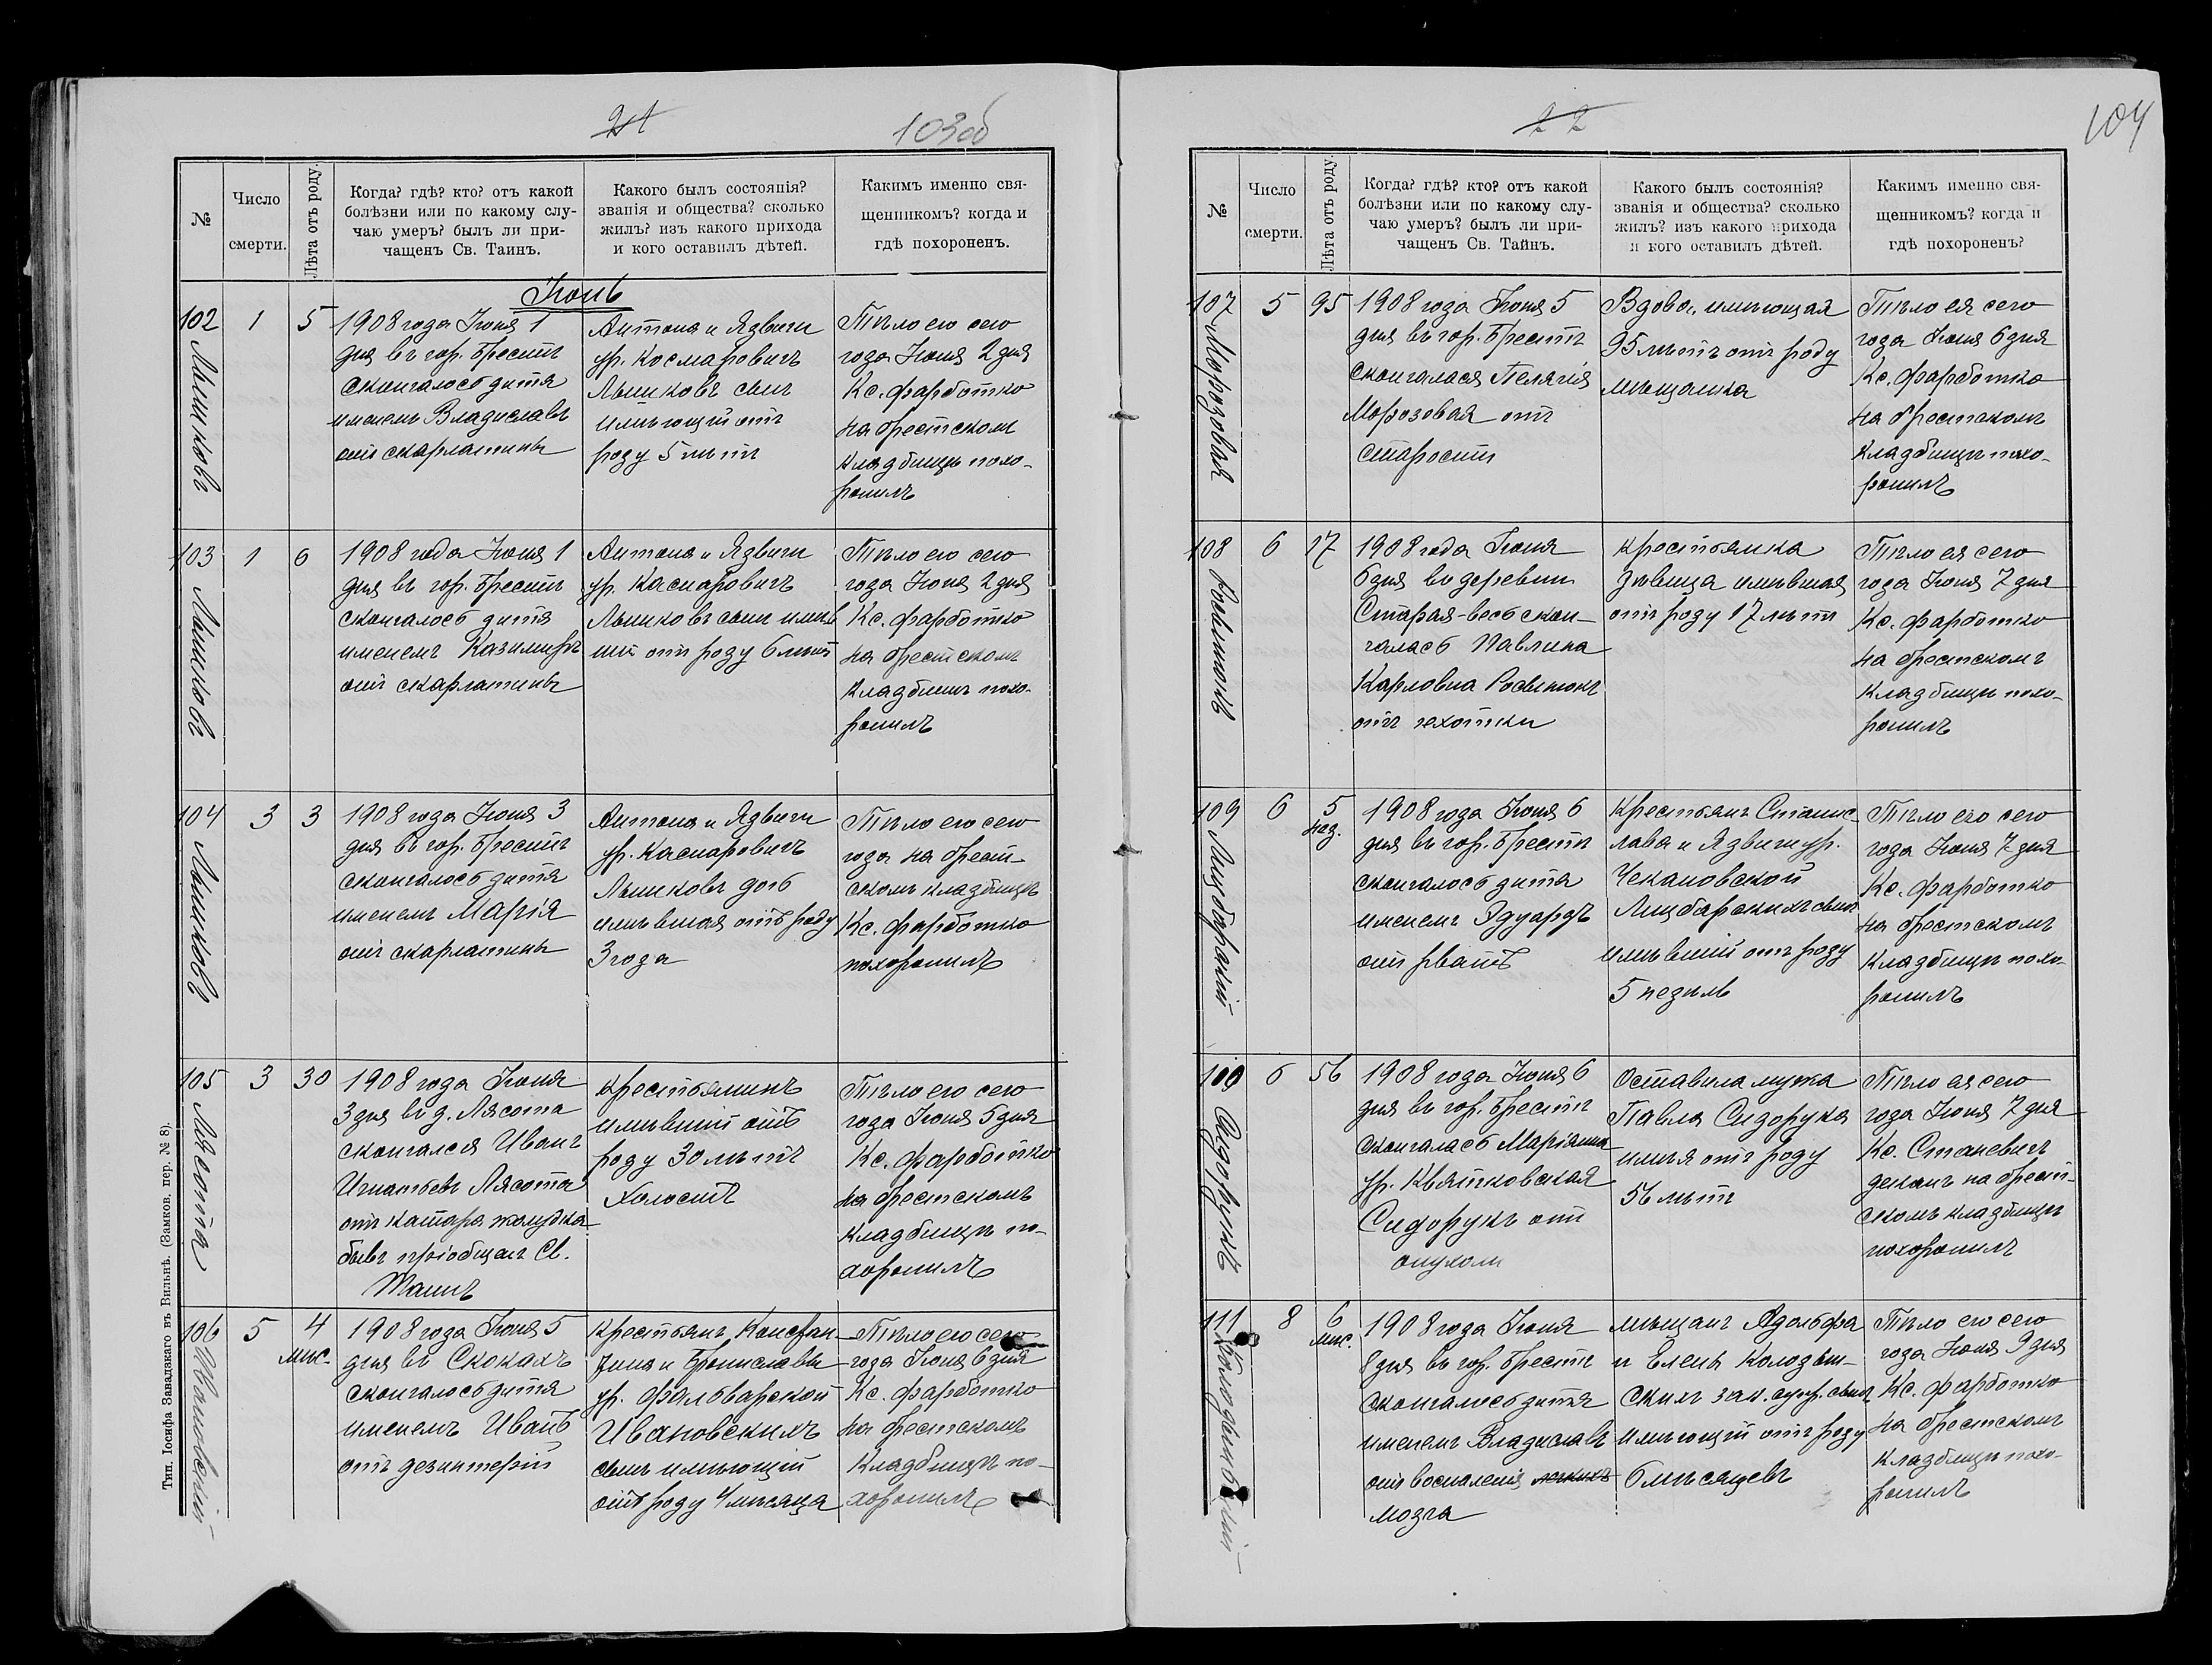 21
103об
№
Число
смерти.
Лѣта отъ роду.
Когда? гдѣ? кто? отъ какой
болѣзни или по какому слу-
чаю умеръ? былъ ли при-
чащенъ Св. Таинъ.
Какого былъ состоянія?
званія и общества? сколько
жилъ? изъ какого прихода
и кого оставилъ дѣтей.
Какимъ именно свя-
щенникомъ? когда и
гдѣ похороненъ.
Іюнь
102
1
5
1908 года Іюня 1
дня въ гор. Брестѣ
скончалось дитя
именемъ Владиславъ
отъ скарлатины
Антона и Ядвиги
ур. Каспаровичъ
сынъ
имѣющій отъ
роду 5 лѣтъ
Тѣло его сего
года Іюня 2 дня
Кс. Фарботко
на брестскомъ
кладбищѣ похо-
ронилъ
103
1
6
1908 года Іюня 1
дня въ гор. Брестѣ
скончалось дитя
именемъ Казимиръ
отъ скарлатины
Антона и Ядвиги
ур. Каспаровичъ
сынъ имѣв
шій отъ роду 6 лѣтъ
Тѣло его сего
года Іюня 2 дня
Кс. Фарботко
на брестскомъ
кладбищѣ похо-
ронилъ
104
3
3
1908 года Іюня 3
дня въ гор. Брестѣ
скончалось дитя
именемъ Марія
отъ скарлатины
Антона и Ядвиги
ур. Каспаровичъ
дочь
имѣвшая отъ роду
3 года
Тѣло его сего
года на брест-
скомъ кладбищѣ
Кс. Фарботко
похоронилъ
105
Лясота
3
30
1908 года Іюня
3 дня въ д. Лясота
скончался Иванъ
Игнатьевъ Лясота
отъ катара желудка
бывъ пріобщенъ Св.
Таинъ
Крестьянинъ
имѣвшій отъ
роду 30 лѣтъ
Холостъ
Тѣло его сего
года Іюня 5 дня
Кс. Фарботко
на брестскомъ
кладбищѣ по-
хоронилъ
106
Ивановскій
5
4
мѣс.
1908 года Іюня 5
дня въ Скокахъ
скончалось дитя
именемъ Иванъ
отъ дезинтеріи
Крестьянъ Констан-
тина и Брониславы
ур. Фальварской
Ивановскихъ
сынъ имѣющій
отъ роду 4 мѣсяца
Тѣло его сего
года Іюня 6 дня
Кс. Фарботко
на брестскомъ
кладбищѣ по-
хоронилъ
Тип. Іосифа Завадзкаго въ Вильнѣ. (Замков. пер. № 8).
22
104
№
Число
смерти.
Лѣта отъ роду.
Когда? гдѣ? кто? отъ какой
болѣзни или по какому слу-
чаю умеръ? былъ ли при-
чащенъ Св. Тайнъ.
Какого былъ состоянія?
званія и общества? сколько
жилъ? изъ какого прихода
и кого оставилъ дѣтей.
Какимъ именно свя-
щенникомъ? когда и
гдѣ похороненъ?
107
Морозовая
5
95
1908 года Іюня 5
дня въ гор. Брестѣ
скончалася Пелягія
Морозовая отъ
старости
Вдова, имѣющая
95 лѣтъ отъ роду
мѣщанка
Тѣло ея сего
года Іюня 6 дня
Кс. Фарботко
на брестскомъ
кладбищѣ похо-
ронилъ
108
6
17
1908 года Іюня
6 дня въ деревни
Старая-весь скон-
чалась Павлина
Карловна
отъ чехотки
Крестьянка
дѣвица имѣвшая
отъ роду 17 лѣтъ
Тѣло ея сего
года Іюня 7 дня
Кс. Фарботко
на брестскомъ
кладбищѣ похо-
ронилъ
109
Лицбарскій
6
5
нед.
1908 года Іюня 6
дня въ гор. Брестѣ
скончалось дитя
именемъ Эдуардъ
отъ рвоты
Крестьянъ Станис-
лава и Ядвиги ур.
Чекановской
Лицбарскихъ сынъ
имѣвшій отъ роду
5 недѣль
Тѣло его сего
года Іюня 7 дня
Кс. Фарботко
на брестскомъ
кладбищѣ похо-
ронилъ
110
Сидорукъ
6
56
1908 года Іюня 6
дня въ гор. Брестѣ
скончалась Маріянна
ур. Квятковская
Сидорукъ отъ
опухоли
Оставила мужа
Павла Сидорука
имѣя отъ роду
56 лѣтъ
Тѣло ея сего
года Іюня 7 дня
Кс. Станевичъ
деканъ на брест-
скомъ кладбищѣ
похоронилъ
111
8
6
мѣс.
1908 года Іюня
8 дня въ гор. Брестѣ
скончалось дитя
именемъ Владиславъ
отъ воспаленія легкихъ
мозга
мѣщанъ Адольфа
и Елены Колодзин-
скихъ зак. супр. сынъ
имѣющій отъ роду
6 мѣсяцевъ
Тѣло его сего
года Іюня 9 дня
Кс. Фарботко
на брестскомъ
кладбищѣ похо-
ронилъ